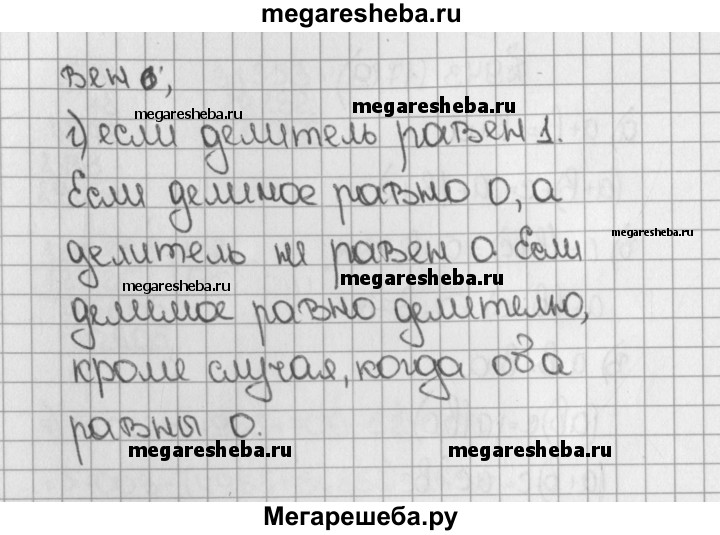 megaresheba.ru
вен 0;
megaresheba.ru
megaresheba.ru
г) если делитель равен 1.
Если делимое равно 0, а
megaresheba.ru
делитель не равен 0. Если
megaresheba.ru
megaresheba.ru
делимое равно делителю,
кроме случая, когда оба
равны 0.
megaresheba.ru
megaresheba.ru
megaresheba.ru
Мегарешеба.ру